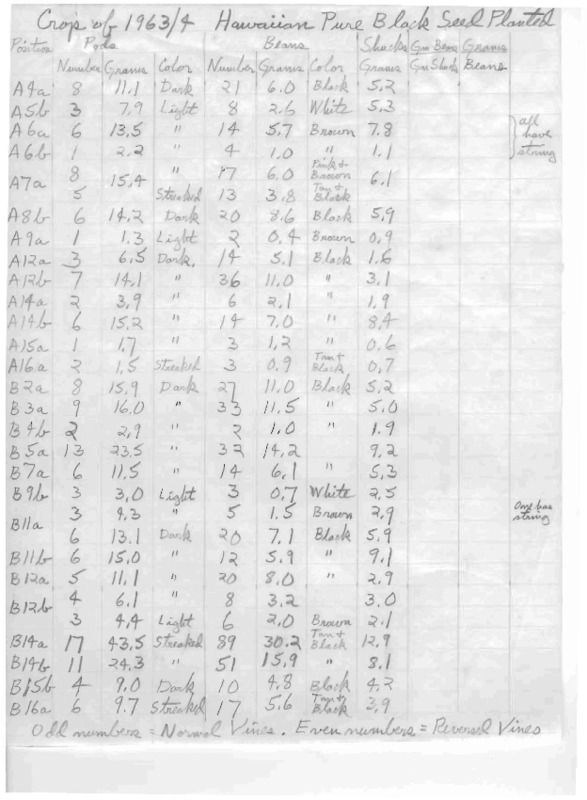 Crop of 1963/4 Hawaiian Pure Black Seed Planted
Position Pods Beans Shucks Gm Beans Grams
Number Grams Color Number Grams Color Grams Gm Shucks Beans
A4a 8 11.1 Dark 21 6.0 Black 5.2
A5b 3 7.9 Light 8 2.6 White 5.3
A6a 6 13.5 " 14 5.7 Brown 7.8 all have string
A6b 1 2.2 " 4 1.0 " 1.1
A7a 8 15.4 " 17 6.0 Pink + Brown 6.1
5 Streaked 13 3.8 Tan + Black
A8b 6 14.2 Dark 20 8.6 Black 5.9
A9a 1 1.3 Light 2 0.4 Brown 0.9
A12a 3 6.5 Dark 14 5.1 Black 1.6
A12b 7 14.1 " 36 11.0 " 3.1
A14a 2 3.9 " 6 2.1 " 1.9
A14b 6 15.2 " 14 7.0 " 8.4
A15a 1 1.7 " 3 1.2 " 0.6
A16a 2 1.5 Streaked 3 0.9 Tan + Black 0.7
B2a 8 15.9 Dark 27 11.0 Black 5.2
B3a 9 16.0 " 33 11.5 " 5.0
B4b 2 2.9 " 2 1.0 " 1.9
B5a 13 23.5 " 32 14.2 9.2
B7a 6 11.5 " 14 6.1 " 5.3
B9b 3 3.0 Light 3 0.7 White 2.5
B11a 3 4.3 " 5 1.5 Brown 2.9 One has string
6 13.1 Dark 20 7.1 Black 5.9
B11b 6 15.0 " 12 5.9 " 9.1
B12a 5 11.1 " 20 8.0 " 2.9
B12b 4 6.1 " 8 3.2 3.0
3 4.4 Light 6 2.0 Brown 2.1
B14a 17 43.5 Streaked 89 30.2 Tan + Black 12.9
B14b 11 24.3 " 51 15.9 " 8.1
B15b 4 9.0 Dark 10 4.8 Black 4.2
B16a 6 9.7 Streaked 17 5.6 Tan + Black 3.9
Odd numbers = Normal Vines. Even numbers = Reversed Vines